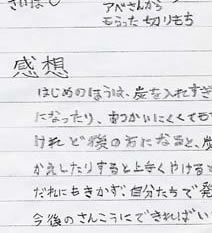 アベさんから
もらった切りもち
感想
はじめのほうは、炭を入れすぎ
になったり、火がつかいにくくても
けれど後の方になると、炭
かえしたりすると上手くやけると
だれにもきかず、自分たちで発
今後のさんこうにできればい